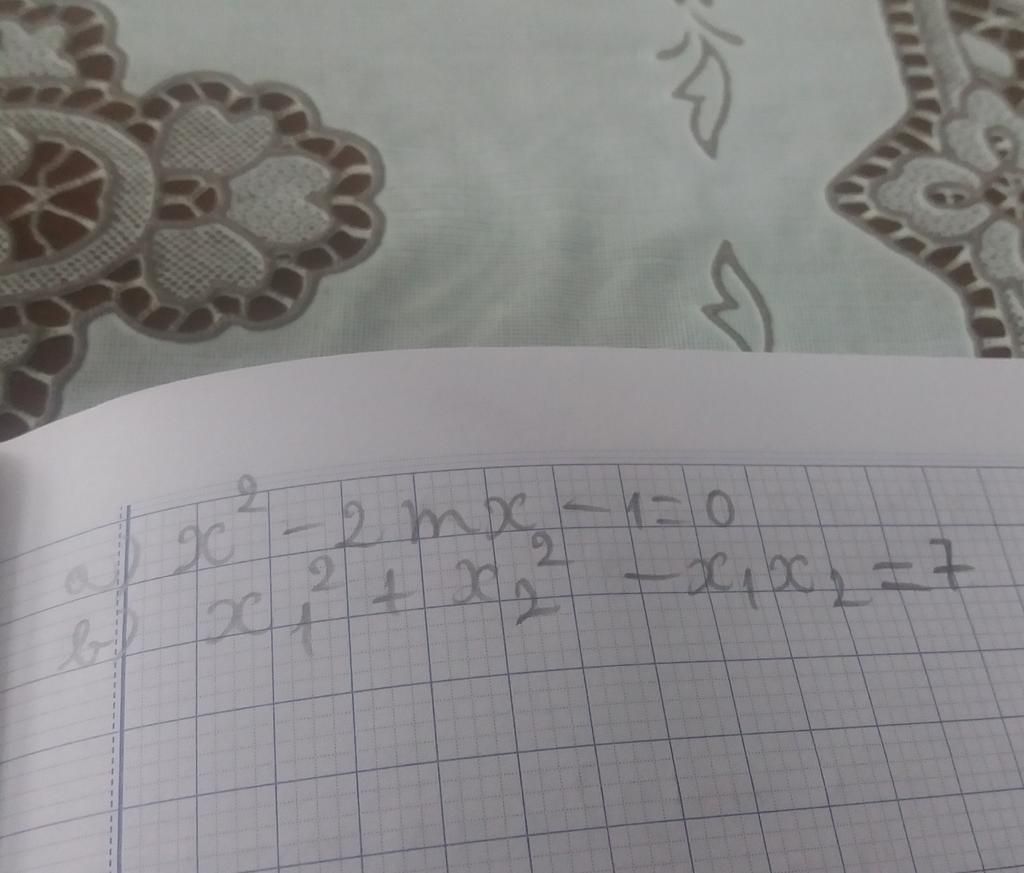 a) x² - 2mx - 1 = 0
b) x₁² + x₂² - x₁x₂ = 7